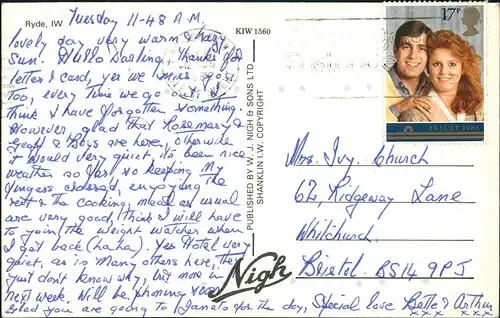 Ryde, IW
Tuesday 11-48 A.M.
KIW 1560
lovely day, very warm & hazy
Sun. Hullo Darling, thanks for
letter & card, yes we miss you
too, every time we go out, I
think I have forgotten something.
However, glad that Rosemary &
Geoff & Boys are here, otherwise
it would very quiet, it's been nice
weather so far so keeping my
fingers crossed, enjoying the
rest & the cooking, meals as usual
are very good, think I will have
to join the weight watchers when
I get back (ha ha). Yes Hotel very
quiet, as in many others here, they
just don't know why, but more in
next week. Will be phoning soon
Glad you are going to Janets for the day, Special love Bette & Arthur
xxx xxx
PUBLISHED BY W. J. NIGH & SONS LTD
SHANKLIN I.W. COPYRIGHT
Nigh
17P
23 JULY 1986
Mrs. Ivy. Church
62, Ridgeway Lane
Whitchurch
Bristol. BS14 9PJ